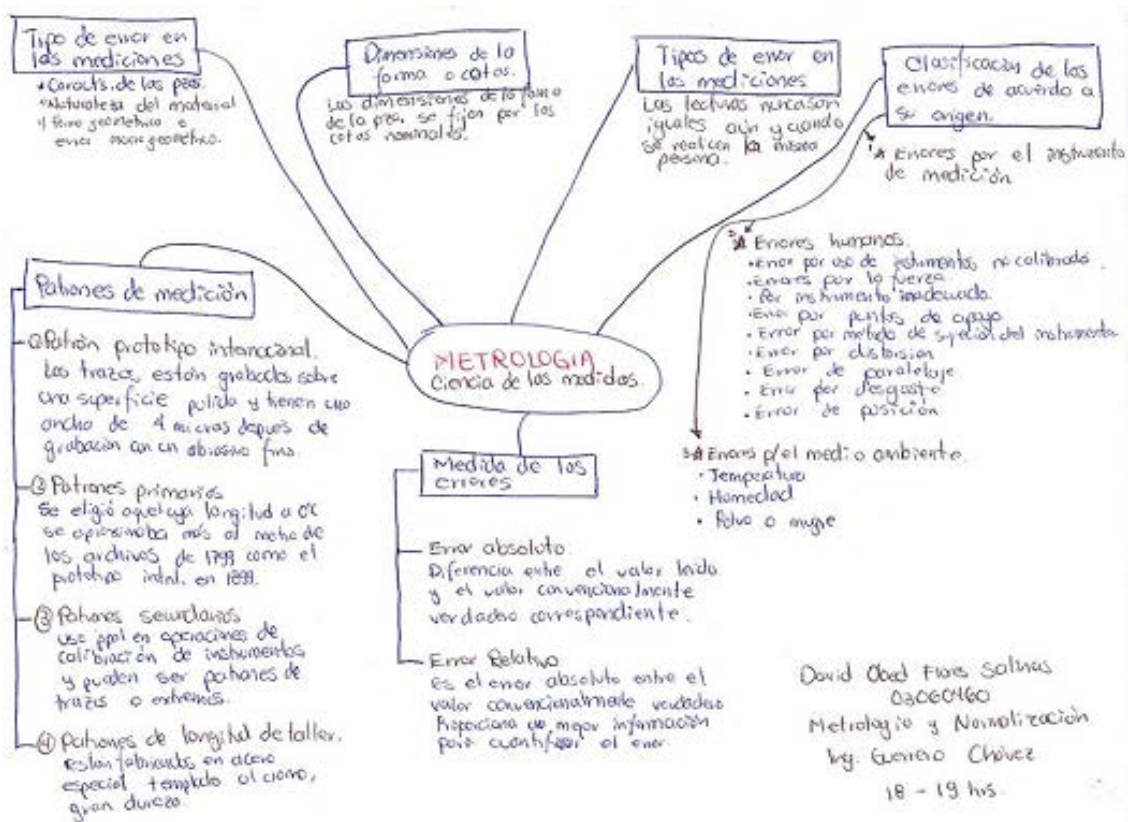 Tipo de error en
las mediciones
• Caracts. de las pzas.
• Naturaleza del material
• forma geométrica o
error macrogeométrico.
Dimensiones de la
forma o cotas.
Las dimensiones de la forma
de la pza, se fijan por las
cotas nominales.
Tipos de error en
las mediciones
Las lecturas nunca son
iguales aún y cuando
se realicen la misma
persona.
Clasificación de los
errores de acuerdo a
su origen.
Errores por el instrumento
de medición
Errores humanos.
• Error por uso de instrumentos no calibrado.
• Errores por la fuerza
• Por instrumento inadecuado.
• Error por puntos de apoyo
• Error por metodo de sujeción del instrumento
• Error por distorsion
• Error de paralelaje
• Error por desgaste
• Error de posición
Errores p/el medio ambiente.
• Temperatura
• Humedad
• Polvo o mugre
METROLOGIA
Ciencia de las medidas.
Patrones de medición
① Patrón prototipo internacional.
Los trazos, están grabados sobre
una superficie pulida y tienen un
ancho de 4 micras después de
grabación con un abrasivo fino.
② Patrones primarios
Se eligió aquel cuya longitud a 0°C
se aproximaba más al metro de
los archivos de 1799 como el
prototipo intnl. en 1899.
③ Patrones secundarios
uso ppal en operaciones de
calibración de instrumentos
y pueden ser patrones de
trazos o extremos.
④ Patrones de longitud de taller.
estan fabricados en acero
especial templado al cromo,
gran dureza
Medida de los
errores
Error absoluto.
Diferencia entre el valor leido
y el valor convencionalmente
verdadero correspondiente.
Error Relativo
Es el error absoluto entre el
valor convencionalmente verdadero
Proporciona mejor información
para cuantificar el error.
David Obed Flores Salinas
03060460
Metrologia y Normalización
Ing. Guerrero Chávez
18 - 19 hrs.